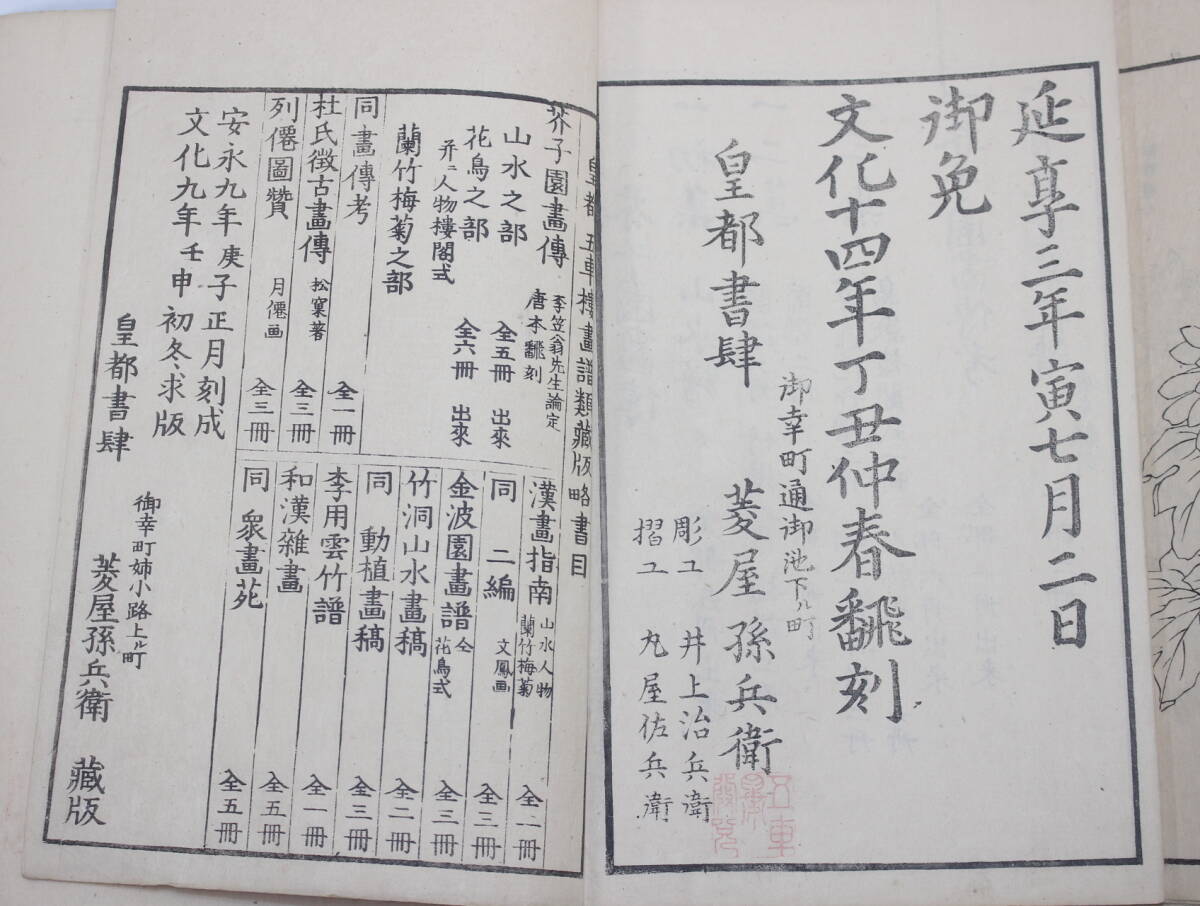 延享三年寅七月二日
御免
文化十四年丁丑仲春翻刻
御幸町通御池下ル町
皇都書肆 菱屋孫兵衛
彫工 井上治兵衛
摺工 丸屋佐兵衛
皇都五車樓畫譜類藏版略書目
芥子園畫傳 李笠翁先生論定 唐本翻刻
山水之部 全五冊 出來
花鳥之部
并ニ人物樓閣式 全六冊 出來
蘭竹梅菊之部
同畫傳考 全一冊
杜氏徴古畫傳 松窠著 全三冊
列僊圖贊 月僊画 全三冊
漢畫指南 山水人物 蘭竹梅菊 全二冊
同 二編 文鳳画 全三冊
金波園畫譜 全 花鳥式 全三冊
竹洞山水畫稿 全二冊
同 動植畫稿 全三冊
李用雲竹譜 全一冊
和漢雜畫 全五冊
同 衆畫苑 全五冊
安永九年庚子正月刻成
文化九年壬申初冬求版
御幸町姉小路上ル町
皇都書肆 菱屋孫兵衛 藏版